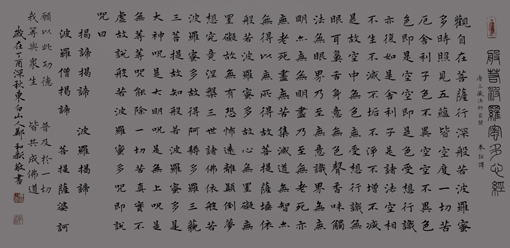 般若波羅蜜多心經
唐三藏法師玄奘 奉詔譯
觀自在菩薩行深般若波羅蜜
多時照見五蘊皆空度一切苦
厄舍利子色不異空空不異色
色即是空空即是色受想行識
亦復如是舍利子是諸法空相
不生不滅不垢不淨不增不減
是故空中無色無受想行識無
眼耳鼻舌身意無色聲香味觸
法無眼界乃至無意識界無無
明亦無無明盡乃至無老死亦
無老死盡無苦集滅道無智亦
無得以無所得故菩提薩埵依
般若波羅蜜多故心無罣礙無
罣礙故無有恐怖遠離顛倒夢
想究竟涅槃三世諸佛依般若
波羅蜜多故得阿耨多羅三藐
三菩提故知般若波羅蜜多是
大神咒是大明咒是無上咒是
無等等咒能除一切苦真實不
虛故說般若波羅蜜多咒即說
咒曰
揭諦揭諦 波羅揭諦
波羅僧揭諦 菩提薩婆訶
願以此功德 普及於一切
我等與眾生 皆共成佛道
歲在丁酉深秋東白山人鄭和敬書